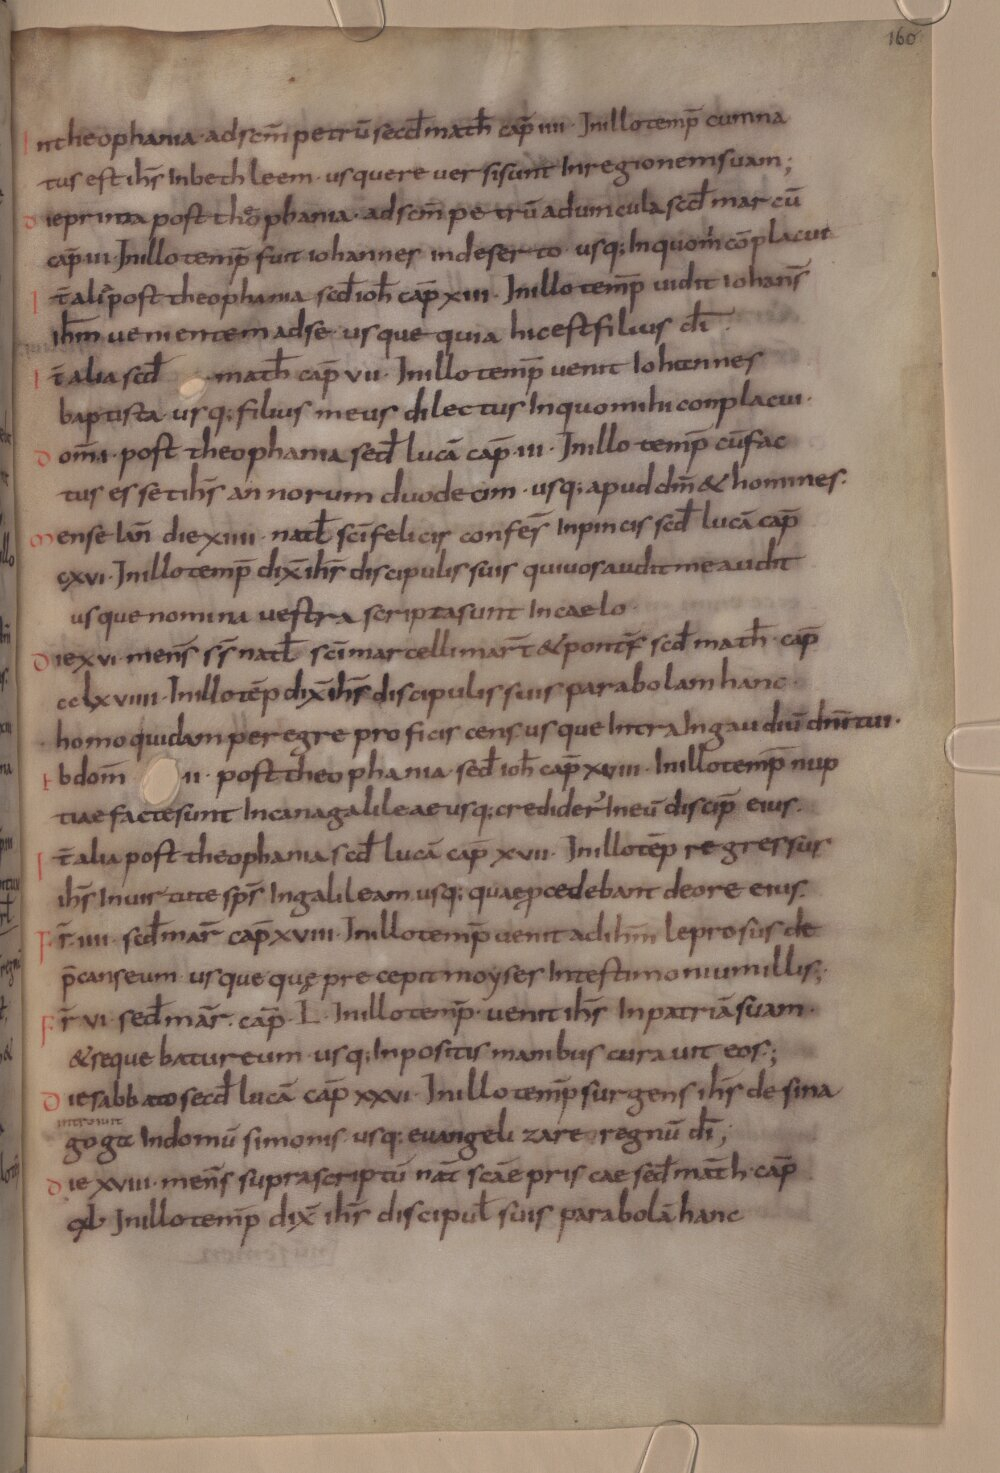 160
In theophania · ad scm̄ petrū secd̄ math̄ cap̄ iiii · In illo temp̄ cum na
tus est ih̄s In bethleem · usque reuersi sunt In regionem suam ;
Die prima post theophania · ad scm̄ petrū ad uincula scd̄ marcū
cap̄ iii · In illo temp̄ fuit iohannes in deserto · usq; In quo m̄ cōplacui
It̄ ali post theophania scd̄ ioh̄ cap̄ xiii · In illo temp̄ uidit iohan̄s
ih̄m uenientem ad se · usque quia hic est filius dī ·
It̄ alia scd̄ math̄ cap̄ vii · In illo temp̄ uenit Iohannes
baptista · usq; filius meus dilectus In quo mihi conplacui ·
Dom̄ i · post theophania secd̄ lucā cap̄ iii · In illo temp̄ cū fac
tus esset ih̄s annorum duodecim · usq; apud dm̄ & homines ·
Mense Ian̄ die xiiii · natl̄ scī felicis confes̄ In pincis scd̄ lucā cap̄
cxvi · In illo temp̄ dix̄ ih̄s discipulis suis qui uos audit me audit
usque nomina uestra scripta sunt In caelo ·
Die xvi · mens̄ ss̄ natl̄ scī marcelli mar̄t & pontf̄ scd̄ math̄ · cap̄
cclxviiii · In illo tēp dix̄ ih̄s discipulis suis parabolam hanc ·
homo quidam peregre proficiscens usque Intra In gaudiū dn̄i tui ·
Ebdom̄ ii · post theophania · secd̄ ioh̄ cap̄ xviii · In illo temp̄ nup
tiae facte sunt In cana galileae usq; credider̄ In eū discip̄ eius ·
It̄ alia post theophania scd̄ lucā cap̄ xvii · In illo tēp regressus
ih̄s In uirtute sps̄ In galileam usq; quae p̱cedebant de ore eius ·
Fr̄ iiii · secd̄ mar̄ cap̄ xviii · In illo temp̄ uenit ad ihm̄ leprosus de
p̄canseum · usque quę precepit moyses In testimonium illis ;
Fr̄ vi · secd̄ mār · cap̄ · L · In illo temp̄ · uenit ih̄s In patriā suam ·
& sequebatur eum · usq; Inpositis manibus curauit eos ;
Die sabbato secd̄ lucā cap̄ xxvi · In illo temp̄ surgens ih̄s de sina
introiuit
goga In domū simonis · usq; euangelizare regnū dī ;
Die xviii · mens̄ suprascriptū nat̄ scāe priscae secd̄ math̄ · cap̄
In illo temp̄ dix̄ ih̄s discipul̄ suis parabolā hanc